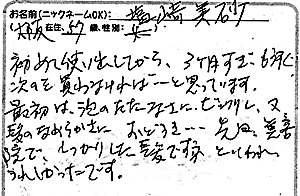 お名前(ニックネームOK): 塩崎 美砂
(大阪 在住, 57 歳、性別: 女)
初めて使い出してから、3ケ月すぎもう
次のを買わなければ…と思っています。
最初は、泡のたたなさに、ビックリし、又
髪のなめらかさに おどろき… 先日、美容
院で、しっかりした髪ですね といわれ
うれしかったです。